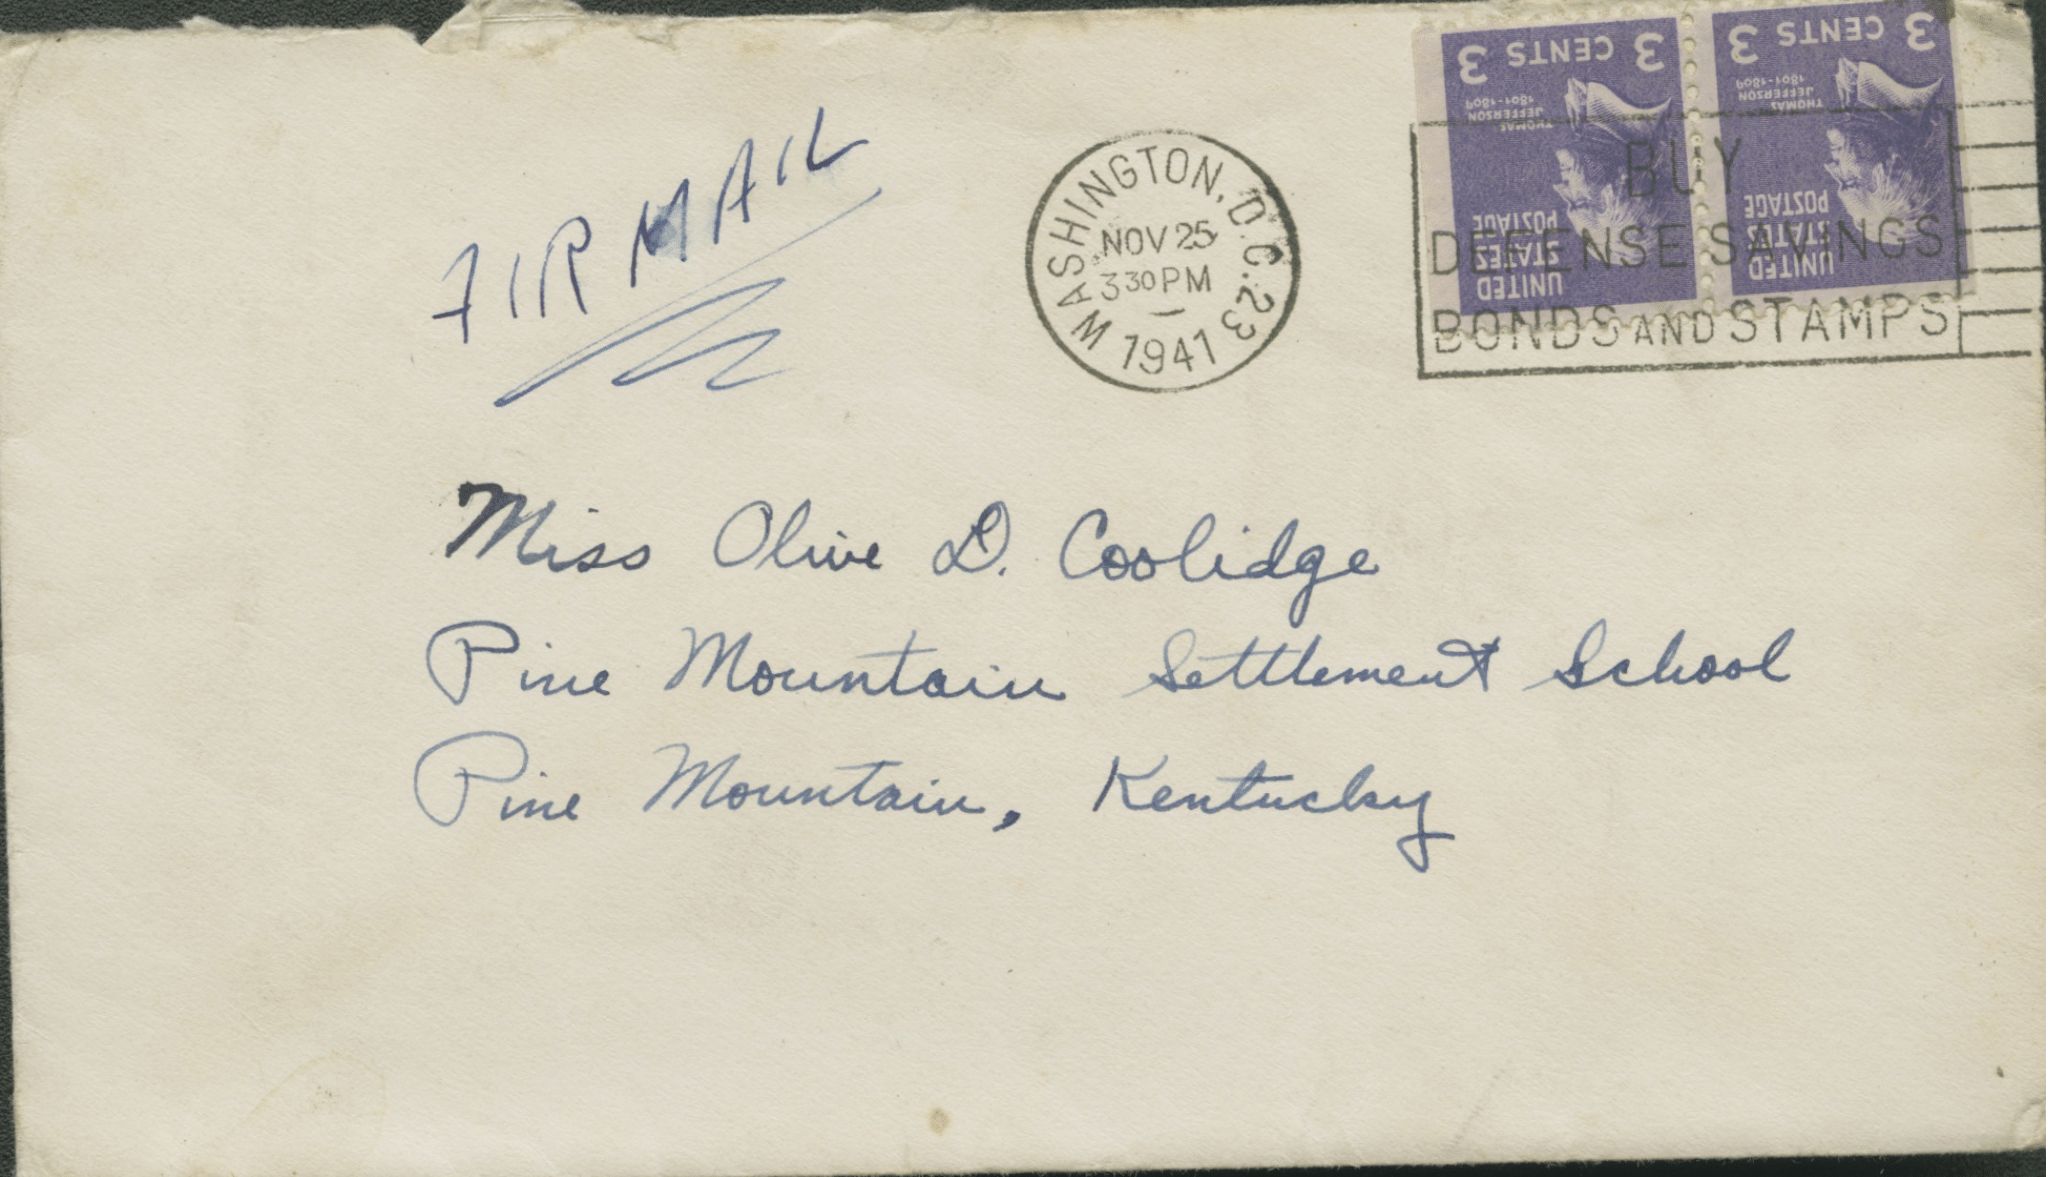 AIR MAIL
WASHINGTON, D.C. 23
NOV 25
3 30 PM
1941
3 CENTS 3
THOMAS
JEFFERSON
1801-1809
UNITED
STATES
POSTAGE
3 CENTS 3
THOMAS
JEFFERSON
1801-1809
UNITED
STATES
POSTAGE
BUY
DEFENSE SAVINGS
BONDS AND STAMPS
Miss Olive D. Coolidge
Pine Mountain Settlement School
Pine Mountain, Kentucky